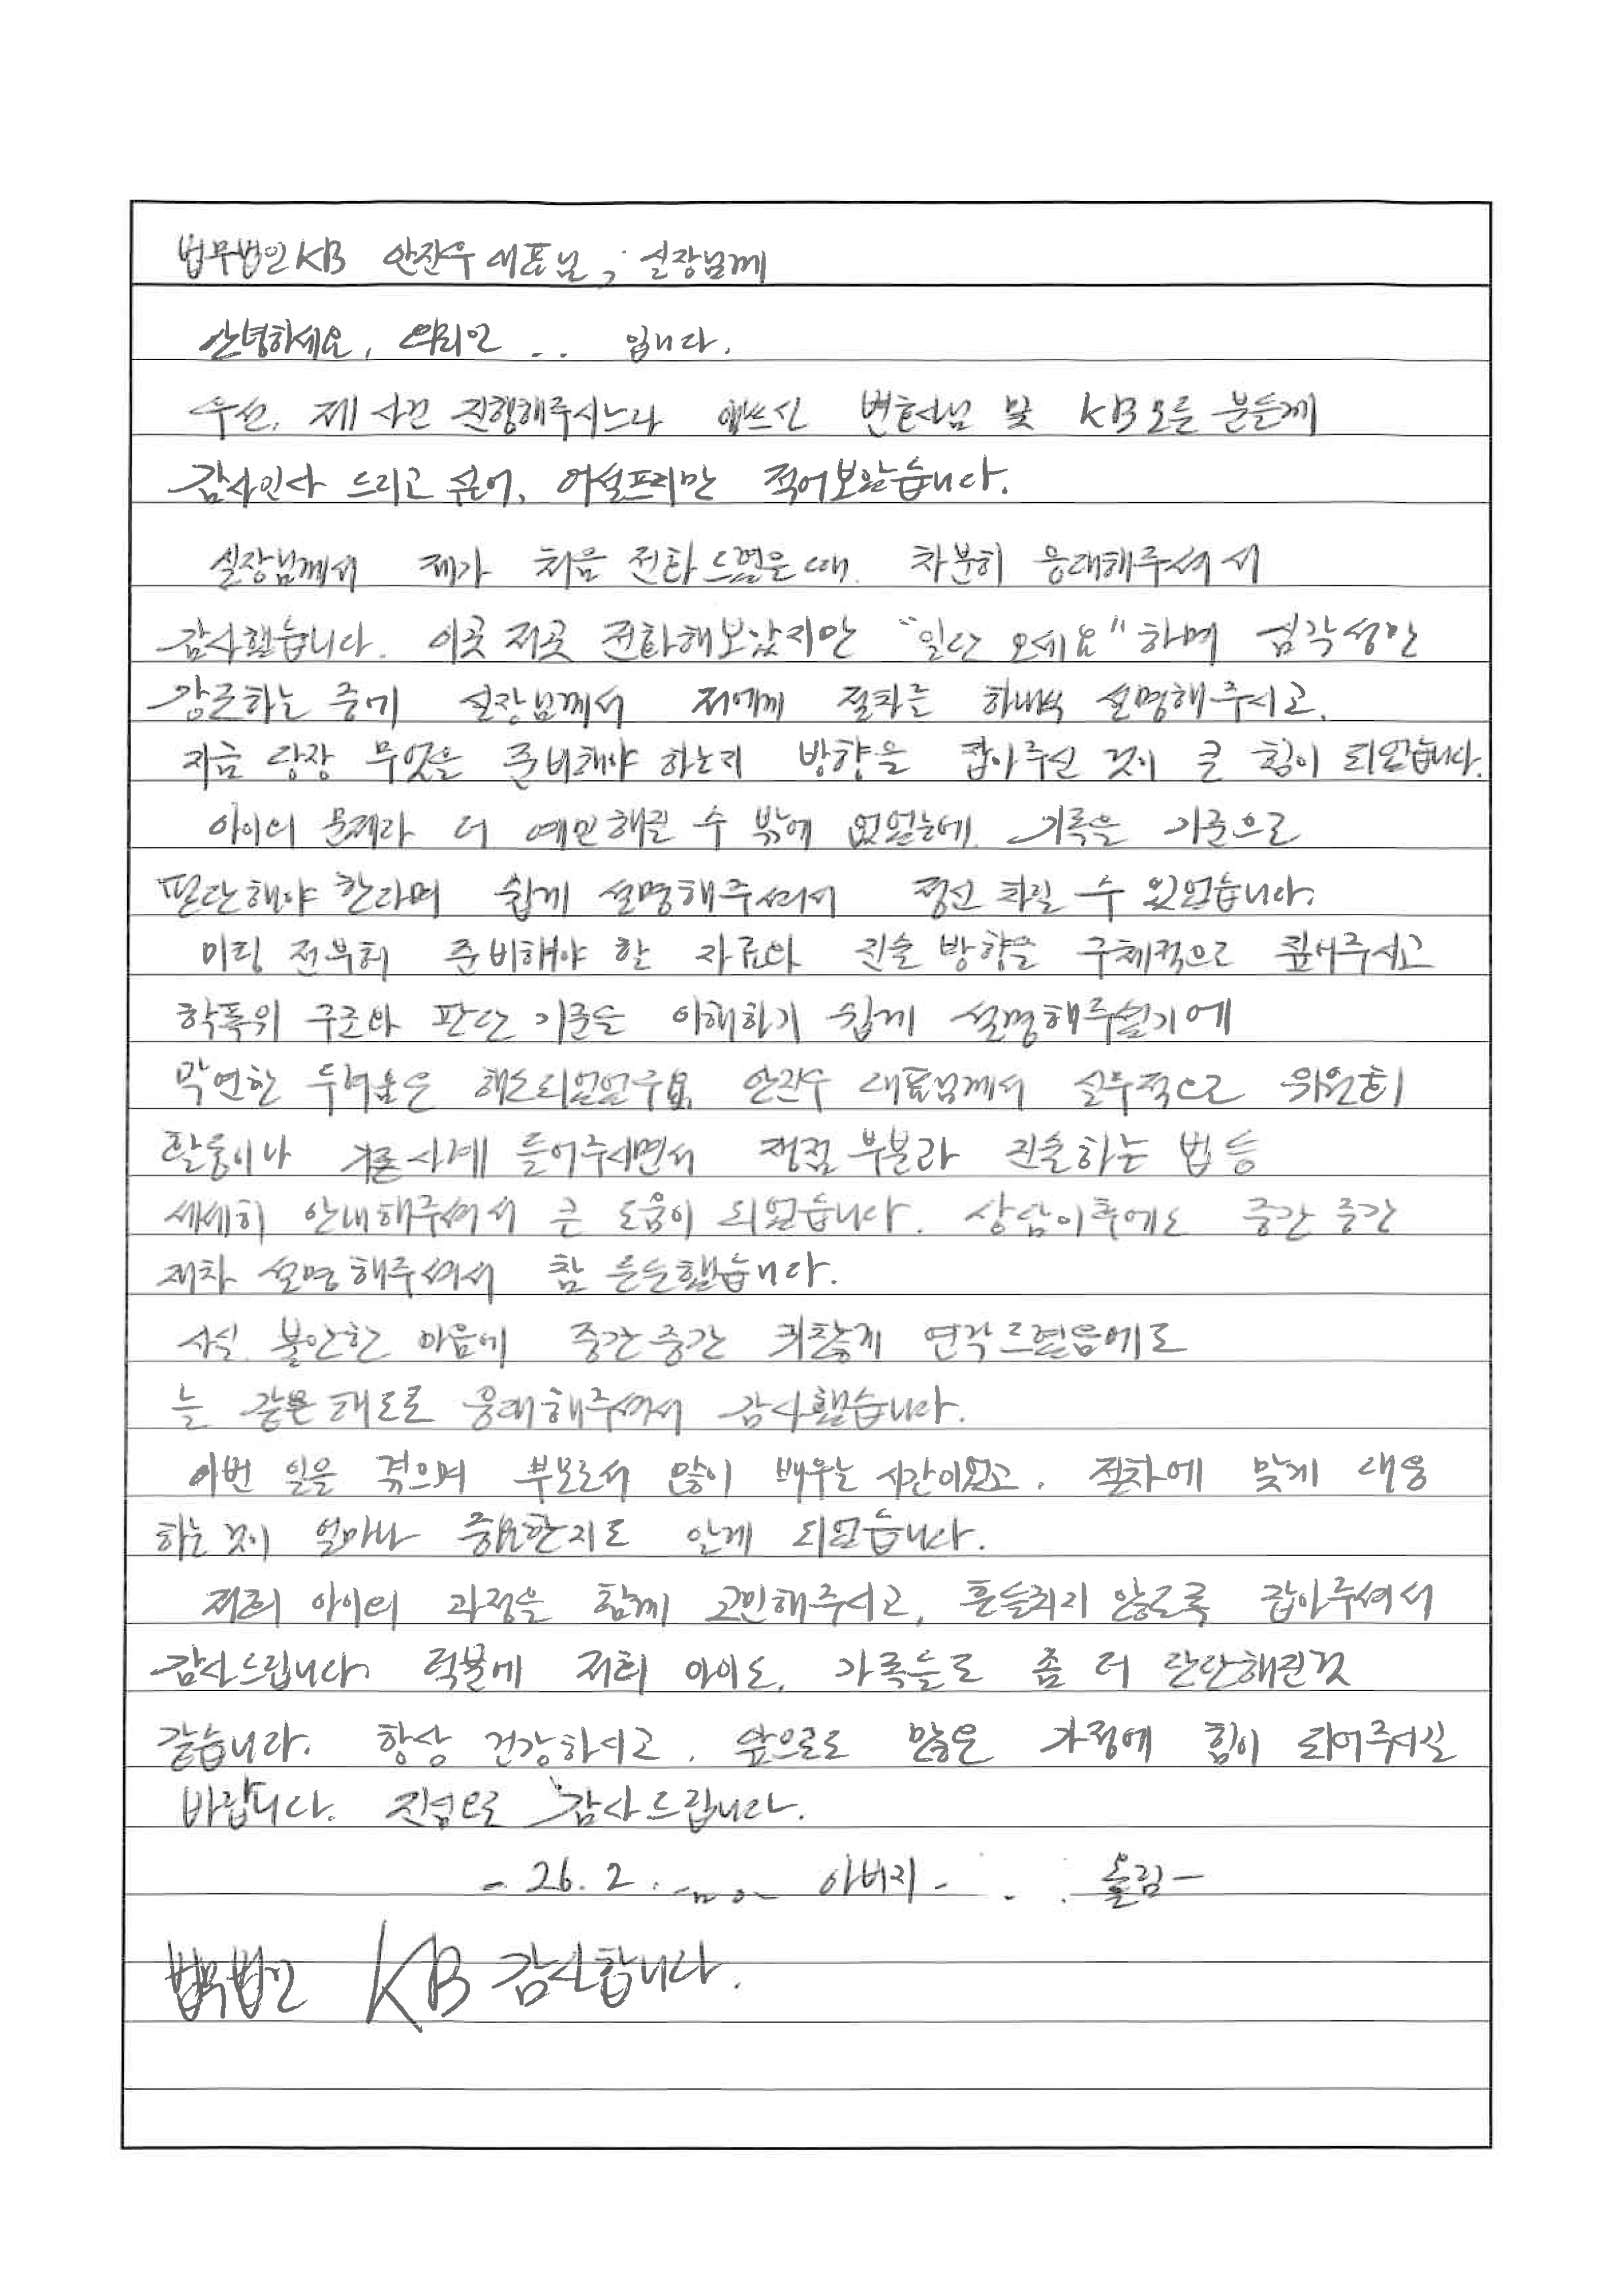 법무법인KB 안잔우 대표님, 실장님께
안녕하세요, 의뢰인 .. 입니다.
우선, 제 사건 진행해주시느라 애쓰신 변호사님 및 KB모든 분들께
감사인사 드리고 싶어, 어설프지만 적어보았습니다.
실장님께서 제가 처음 전화 드렸을 때, 차분히 응대해주셔서
감사했습니다. 이곳 저곳 전화해보았지만 "일단 오세요" 하며 심각성만
강조하는 중에 실장님께서 저에게 절차를 하나씩 설명해주시고,
지금 당장 무엇을 준비해야 하는지 방향을 잡아주신 것이 큰 힘이 되었습니다.
아이의 문제라 더 예민해질 수 밖에 없었는데, 기록을 기준으로
판단해야 한다며 쉽게 설명해주셔서 정신 차릴 수 있었습니다.
미팅 전부터 준비해야 할 자료와 진술 방향을 구체적으로 짚어주시고
학폭위 구조와 판단 기준을 이해하기 쉽게 설명해주셨기에
막연한 두려움은 해소되었었구요, 안잔우 대표님께서 실무적으로 위원회
활동이나 사례 들어주시면서 쟁점 부분과 진술하는 법 등
세세히 안내해주셔서 큰 도움이 되었습니다. 상담이후에도 중간 중간
재차 설명해주셔서 참 든든했습니다.
사실, 불안한 마음에 중간중간 귀찮게 연락드렸음에도
늘 같은 태도로 응대해주셔서 감사했습니다.
이번 일을 겪으며 부모로서 많이 배우는 시간이었고, 절차에 맞게 대응
하는 것이 얼마나 중요한지도 알게 되었습니다.
저희 아이의 과정을 함께 고민해주시고, 흔들리지 않도록 잡아주셔서
감사드립니다. 덕분에 저희 아이도, 가족들도 좀 더 단단해진것
같습니다. 항상 건강하시고, 앞으로도 많은 가정에 힘이 되어주시길
바랍니다. 진심으로 감사드립니다.
- 26. 2. 아버지 - 올림 -
법무법인 KB 감사합니다.